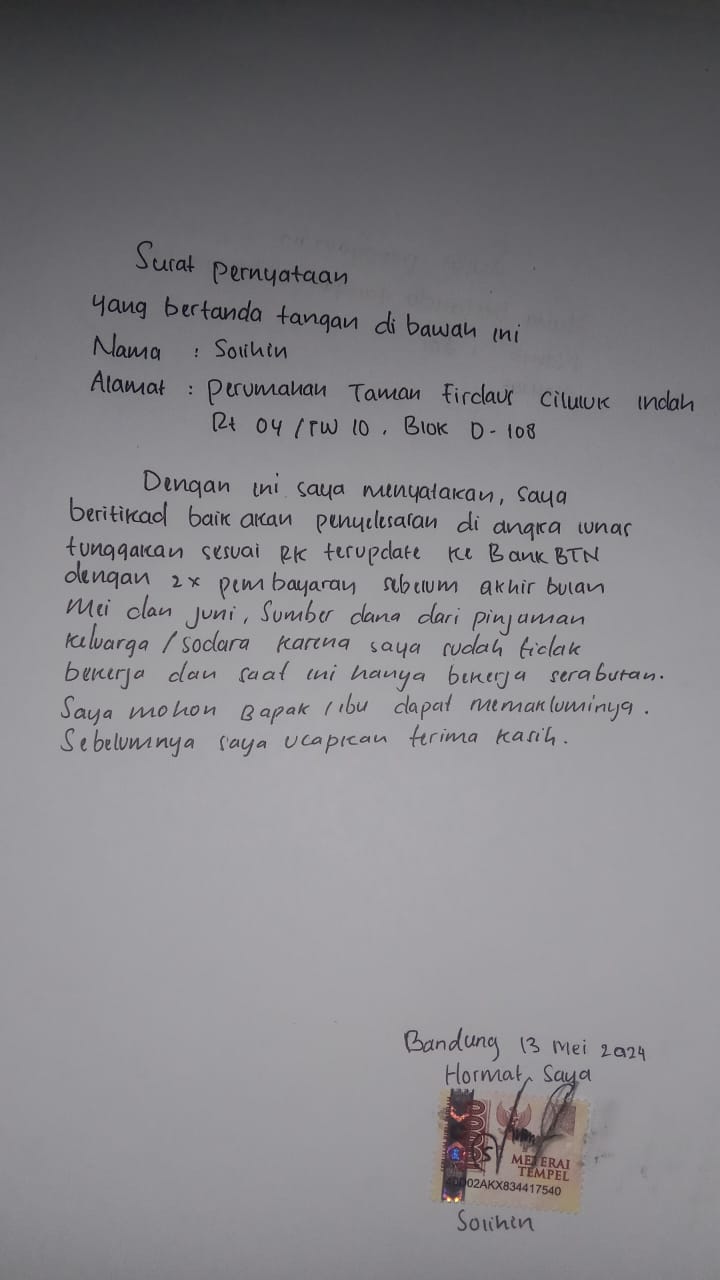 Surat Pernyataan
yang bertanda tangan di bawah ini
Nama : Solihin
Alamat : Perumahan Taman Firdaus Ciluluk indah
Rt 04 / RW 10 . Blok D - 108
Dengan ini saya menyatakan, saya
beritikad baik akan penyelesaran di angka lunas
tunggakan sesuai RK terupdate ke Bank BTN
dengan 2x pembayaran sebelum akhir bulan
Mei dan Juni, Sumber dana dari pinjaman
keluarga / sodara karena saya sudah tidak
bekerja dan saat ini hanya bekerja serabutan.
Saya mohon Bapak / ibu dapat memakluminya.
Sebelumnya saya ucapkan terima kasih.
Bandung 13 Mei 2024
Hormat Saya
METERAI
TEMPEL
02AKX834417540
Solihin